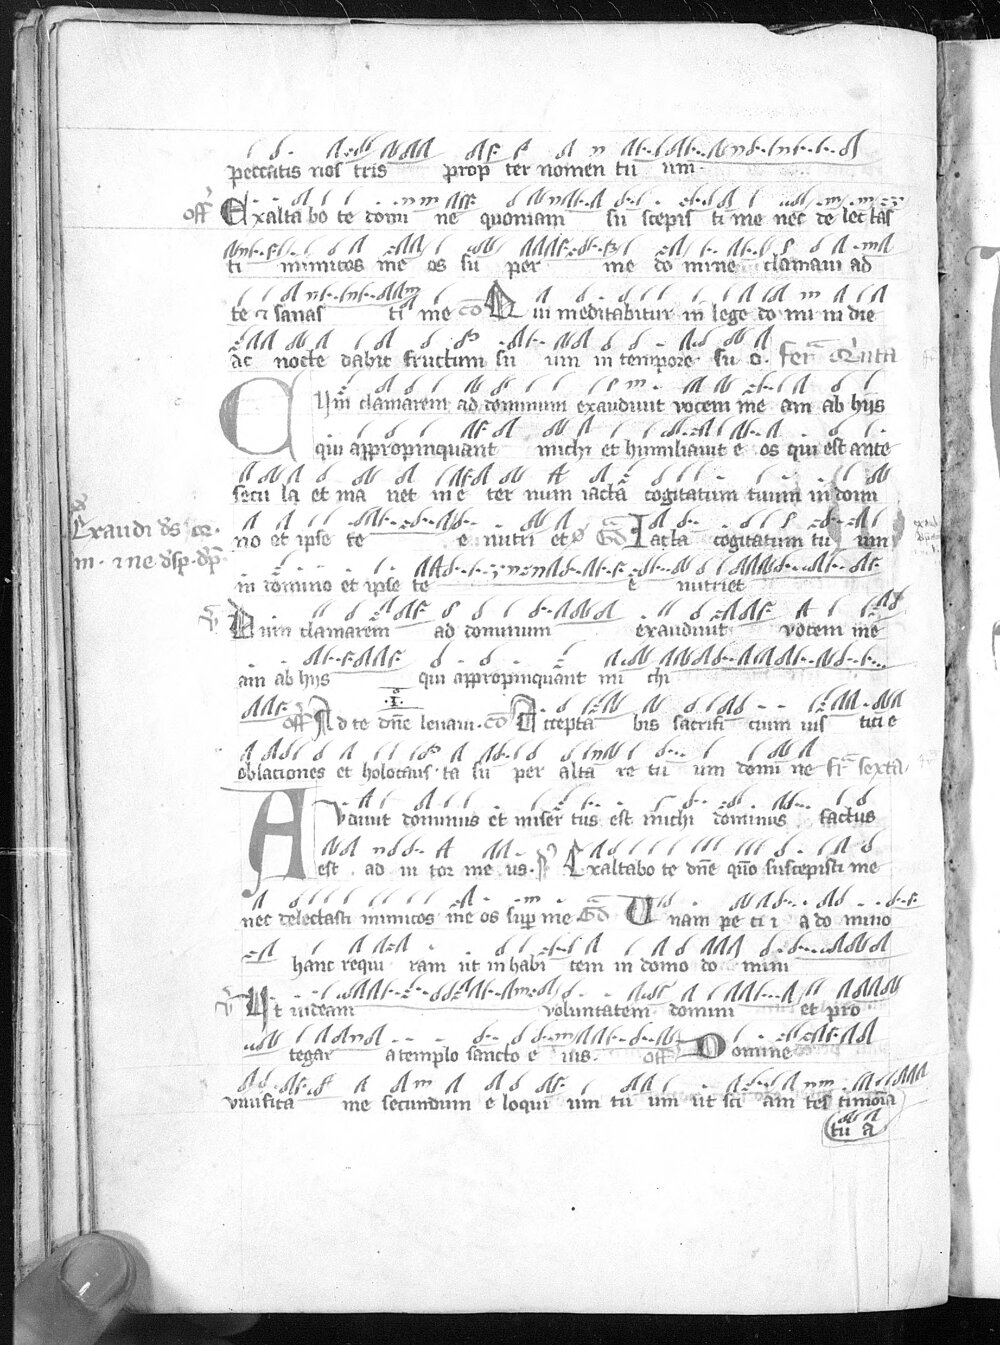 peccatis nos tris prop ter nomen tu um.
off Exalta bo te domi ne quoniam su scepis ti me nec de lec tas
ti inimicos me os su per me do mine clamaui ad
te et sanas ti me co Qui meditabitur in lege do mi ni die
ac nocte dabit fructum su um in tempore su o. feria Quinta
Cum clamarem ad dominum exaudiuit vocem me am ab hijs
qui appropinquant michi et humiliauit e os qui est ante
secu la et ma net in e ter num iacta cogitatum tuum in domi
no et ipse te e nutri et Gd Iacta cogitatum tu um
Exaudi ds or.
m. et ne dsp. dp
in domino et ipse te e nutriet
v Dum clamarem ad dominum exaudiuit vocem me
am ab hijs qui appropinquant mi chi
off Ad te dne leuaui. co Accepta bis sacrifi cium ius tici e
oblaciones et holocaus ta su per alta re tu um domi ne fr sexta
Audiuit dominus et miser tus est michi dominus factus
est ad iu tor me us. ps Exaltabo te dne qm suscepisti me
nec delectasti inimicos me os sup me Gd Unam pe ti i a do mino
hanc requi ram ut inhabi tem in domo do mini
v Ut uideam voluntatem domini et pro
tegar a templo sancto e ius. off Domine
viuifica me secundum e loqui um tu um ut sci am tes timonia
tu a